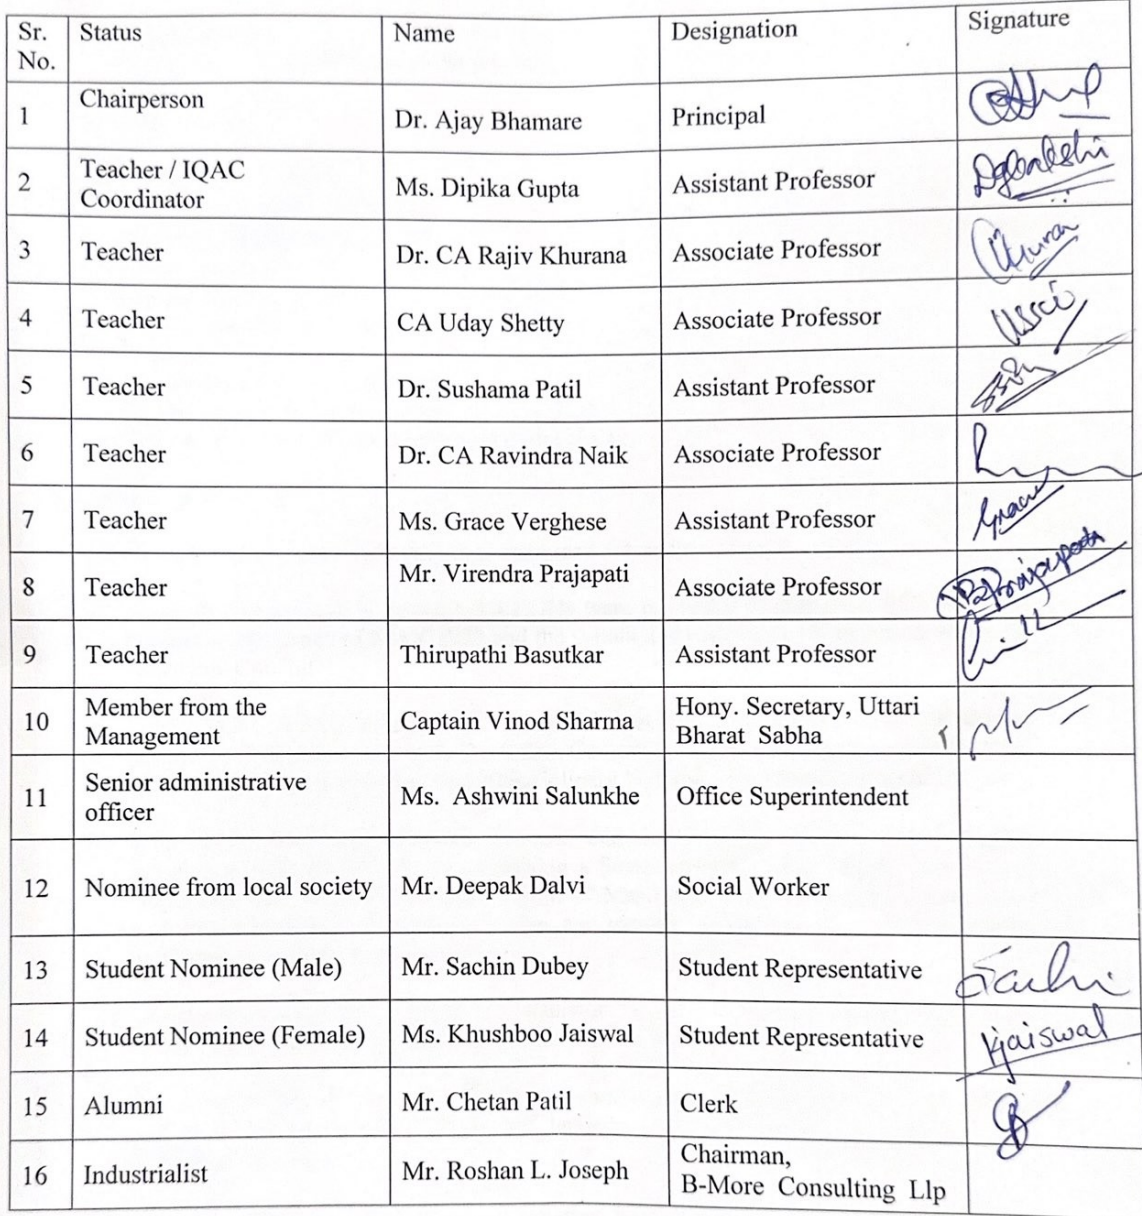 Sr. No. Status Name Designation Signature
1 Chairperson Dr. Ajay Bhamare Principal
2 Teacher / IQAC Coordinator Ms. Dipika Gupta Assistant Professor
3 Teacher Dr. CA Rajiv Khurana Associate Professor
4 Teacher CA Uday Shetty Associate Professor
5 Teacher Dr. Sushama Patil Assistant Professor
6 Teacher Dr. CA Ravindra Naik Associate Professor
7 Teacher Ms. Grace Verghese Assistant Professor
8 Teacher Mr. Virendra Prajapati Associate Professor
9 Teacher Thirupathi Basutkar Assistant Professor
10 Member from the Management Captain Vinod Sharma Hony. Secretary, Uttari Bharat Sabha
11 Senior administrative officer Ms. Ashwini Salunkhe Office Superintendent
12 Nominee from local society Mr. Deepak Dalvi Social Worker
13 Student Nominee (Male) Mr. Sachin Dubey Student Representative
14 Student Nominee (Female) Ms. Khushboo Jaiswal Student Representative Kjaiswal
15 Alumni Mr. Chetan Patil Clerk
16 Industrialist Mr. Roshan L. Joseph Chairman, B-More Consulting Llp